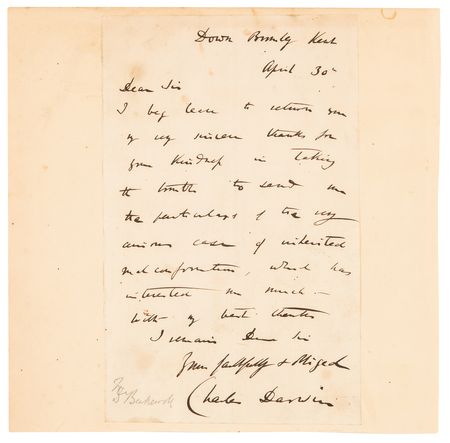 Down Bromley Kent
April 30
Dear Sir
I beg leave to return you
my very sincere thanks for
your kindness in taking
the trouble to send me
the particulars of the very
curious case of inherited
malconformation, which has
interested me much —
With my best thanks
I remain Dear Sir
Yours faithfully & obliged
Charles Darwin